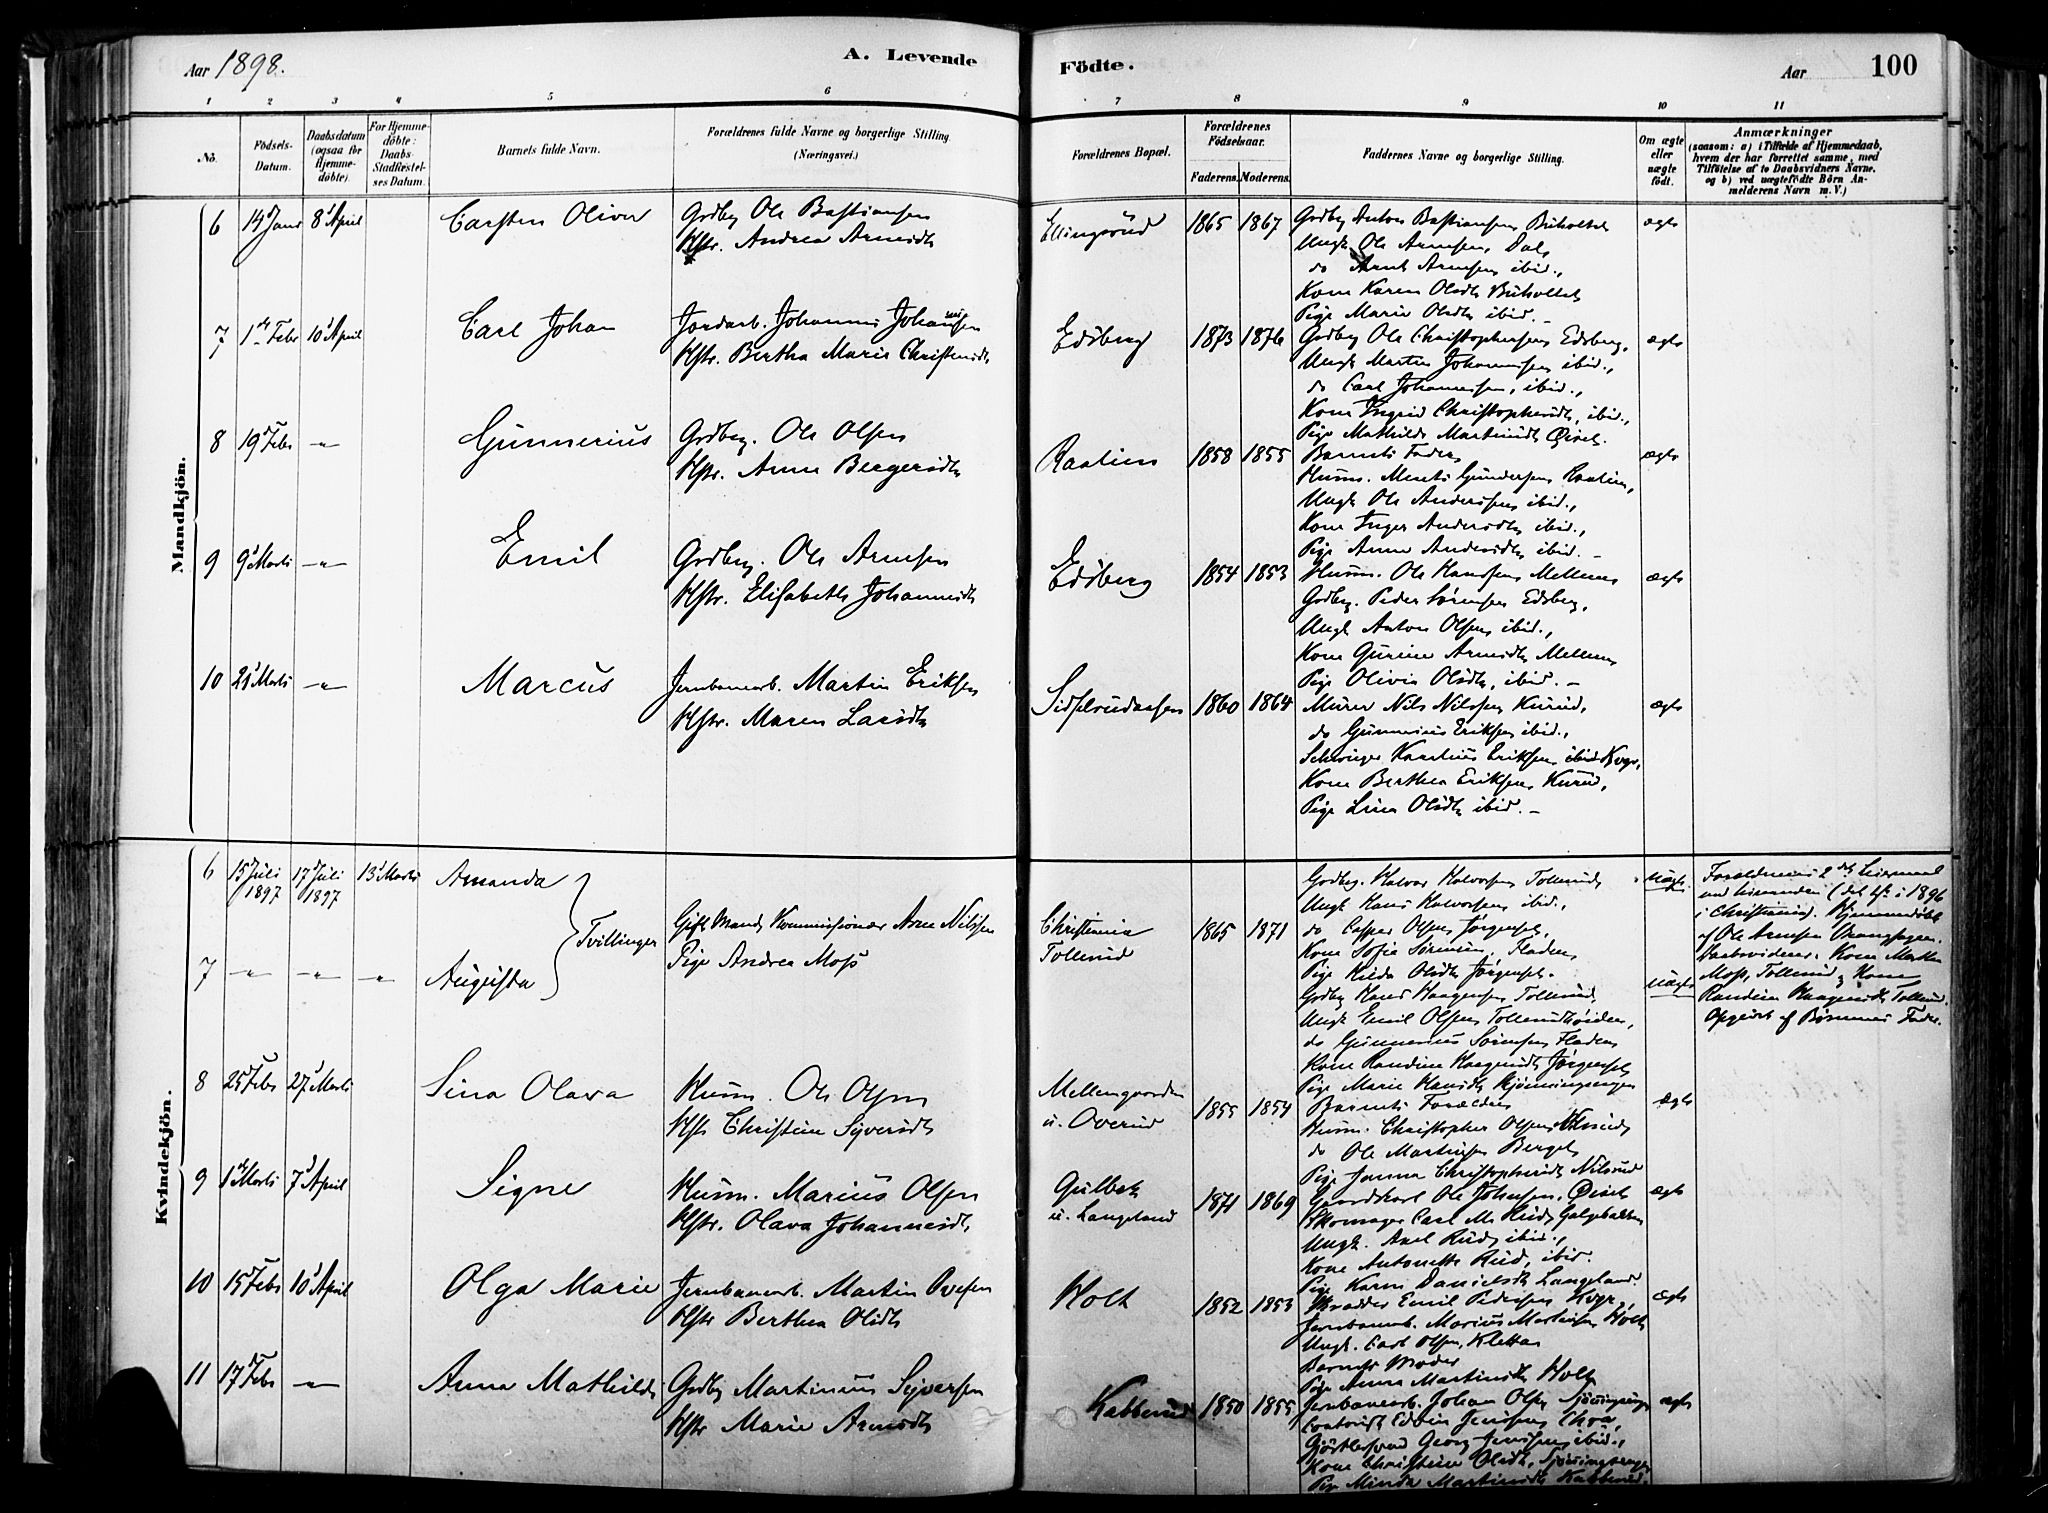 Aar 1898.
A. Levende
Födte.
Aar
100
1 2 3 4 5 6 7 8 9 10 11
No.
Födsels-Datum.
Daabsdatum (ogsaa for Hjemmedöbte).
For Hjemmedöbte: Daabs-Stadfæstelses Datum.
Barnets fulde Navn.
Forældrenes fulde Navne og borgerlige Stilling. (Næringsvei.)
Forældrenes Bopæl.
Forældrenes Födselsaar.
Faderens. Moderens.
Faddernes Navne og borgerlige Stilling.
Om ægte eller uægte födt.
Anmærkninger (saasom: a) i Tilfælde af Hjemmedaab, hvem der har forrettet samme, med Tilföielse af to Daabsvidners Navne, og b) ved uægtefödte Börn Anmelderens Navn m. V.)
Mandkjön.
6 14d Janr 8d April Carsten Oliver Grdbg Ole Bastiansen
Hstr. Andrea Arnesdtr
Ellingsrud 1865 1867 ægte
Grdbg Anton Bastiansen, Buholtet
Ungk Ole Arnesen, Dal,
do Arnt Arnesen ibid.,
Kone Karen Olsdtr Buholtet
Pige Marie Olsdtr ibid. -
7 1ste Febr 10d April Carl Johan Jordarb. Johannes Johansen
Hstr. Bertha Marie Christensdtr
Edsberg 1873 1876 ægte
Grdbg Ole Christophersen Edsberg,
Ungk Martin Johannesen ibid.,
do Carl Johannesen, ibid.,
Kone Ingrid Christophersdtr, ibid.,
Pige Mathilde Martinsdtr
8 19d Febr -"- Gunnerius Grdbrg. Ole Olsen
Hstr. Anne Bergersdtr
Raalien 1858 1855 ægte
Barnets Fader,
Husm. Ments Gundersen Raalien,
Ungk Ole Andersen ibid.,
Kone Inger Andersdtr ibid.,
Pige Anne Andersdtr ibid. -
9 9d Marts -"- Emil Grdbrg. Ole Arnesen
Hstr. Elisabeth Johannesdtr
Edsberg 1854 1853 ægte
Husm. Ole Hansen Mellem
Grdbrg. Peder Sörensen Edsberg,
Ungk Anton Olsen, ibid.,
Kone Gurine Arnesdtr Mellem
Pige Olivia Olsdtr, ibid. -
10 21d Marts -"- Marcus Jernbanearb. Martin Eriksen
Hstr. Maren Larsdtr
1860 1864 ægte
Murer Nils Nilssen Kurud,
do Gunnerius Eriksen ibid.,
Kone Berthea Eriksen, Kurud,
Pige Lina Olsdtr ibid. -
Kvindekjön.
6 15d Juli 1897 17d Juli 1897 13d Marts Amanda
7 -"- -"- -"- Augusta
Tvillinger
Gift Mand, Kommissionær Arne Nilssen
Pige Andrea Moss
Christiania
Tollerud
1865 1871 uægte
uægte
Grdbrg. Halvor Halvorsen Tollerud,
Ungk Hans Halvorsen ibid.,
do Casper Olsen Jørgenset,
Kone Sofie Sörensen, Fladen,
Pige Hilda Olsdtr Jørgenset.
Grdbrg Hans Haagensen Tollerud,
Ungk Emil Olsen
do Gunnerius Sörensen Fladen
Kone Randine Haagensdtr Jørgenset
Pige Marie Hansdtr
Forældrenes 2det Leiermaal
med hinanden (det 1ste i 1896
i Christiania). Hjemmedöbt
af Ole Arnesen
Daabsvidner: Kone Marthe
Moss, Tollerud, og Kone
Randine Haagensdtr Tollerud.
Opgivet af Börnenes Fader.
8 25d Febr 27d Marts Sina Olava Husm. Ole Olsen
Hstr Christine Syversdtr
u. Overud 1855 1854 ægte
Barnets Forældre
Husm. Christopher Olsen
do Ole Martinsen Berget
Pige Janna Christophersdtr Nilsrud
9 1ste Marts 7d April Signe Husm. Marius Olsen
Hstr. Olava Johannesdtr
Gulbek
u. Langeland 1871 1869 ægte
Gaardskarl Ole Johansen,
Skomager Carl M. Rud, Galgebakken
Ungk. Axel Rud, ibid.,
Kone Antonette Rud, ibid.
Pige Karen Danielsdtr Langeland
10 15d Febr 10d April Olga Marie Jernbanearb. Martin Ovesen
Hstr Berthea Olsdtr
Holt 1852 1853 ægte
Skrædder Emil Pedersen Kvgr,
Jernbanearb. Marius Martinsen Holt
Ungk. Carl Olsen, Kletten
Barnets Moder
Pige Anna Martinsdtr Holt
11 17d Febr -"- Anna Mathilde Grdbg Martinus Syversen
Hstr Marie Arnesdtr
Kabberud 1850 1855 ægte
Jernbanearb. Johan Olsen
Kontorist Edvin Jensen
Gjörtlersvend Georg Jenssen, ibid.,
Kone Christine Olsdtr,
Pige Minda Martinsdtr Kabberud.